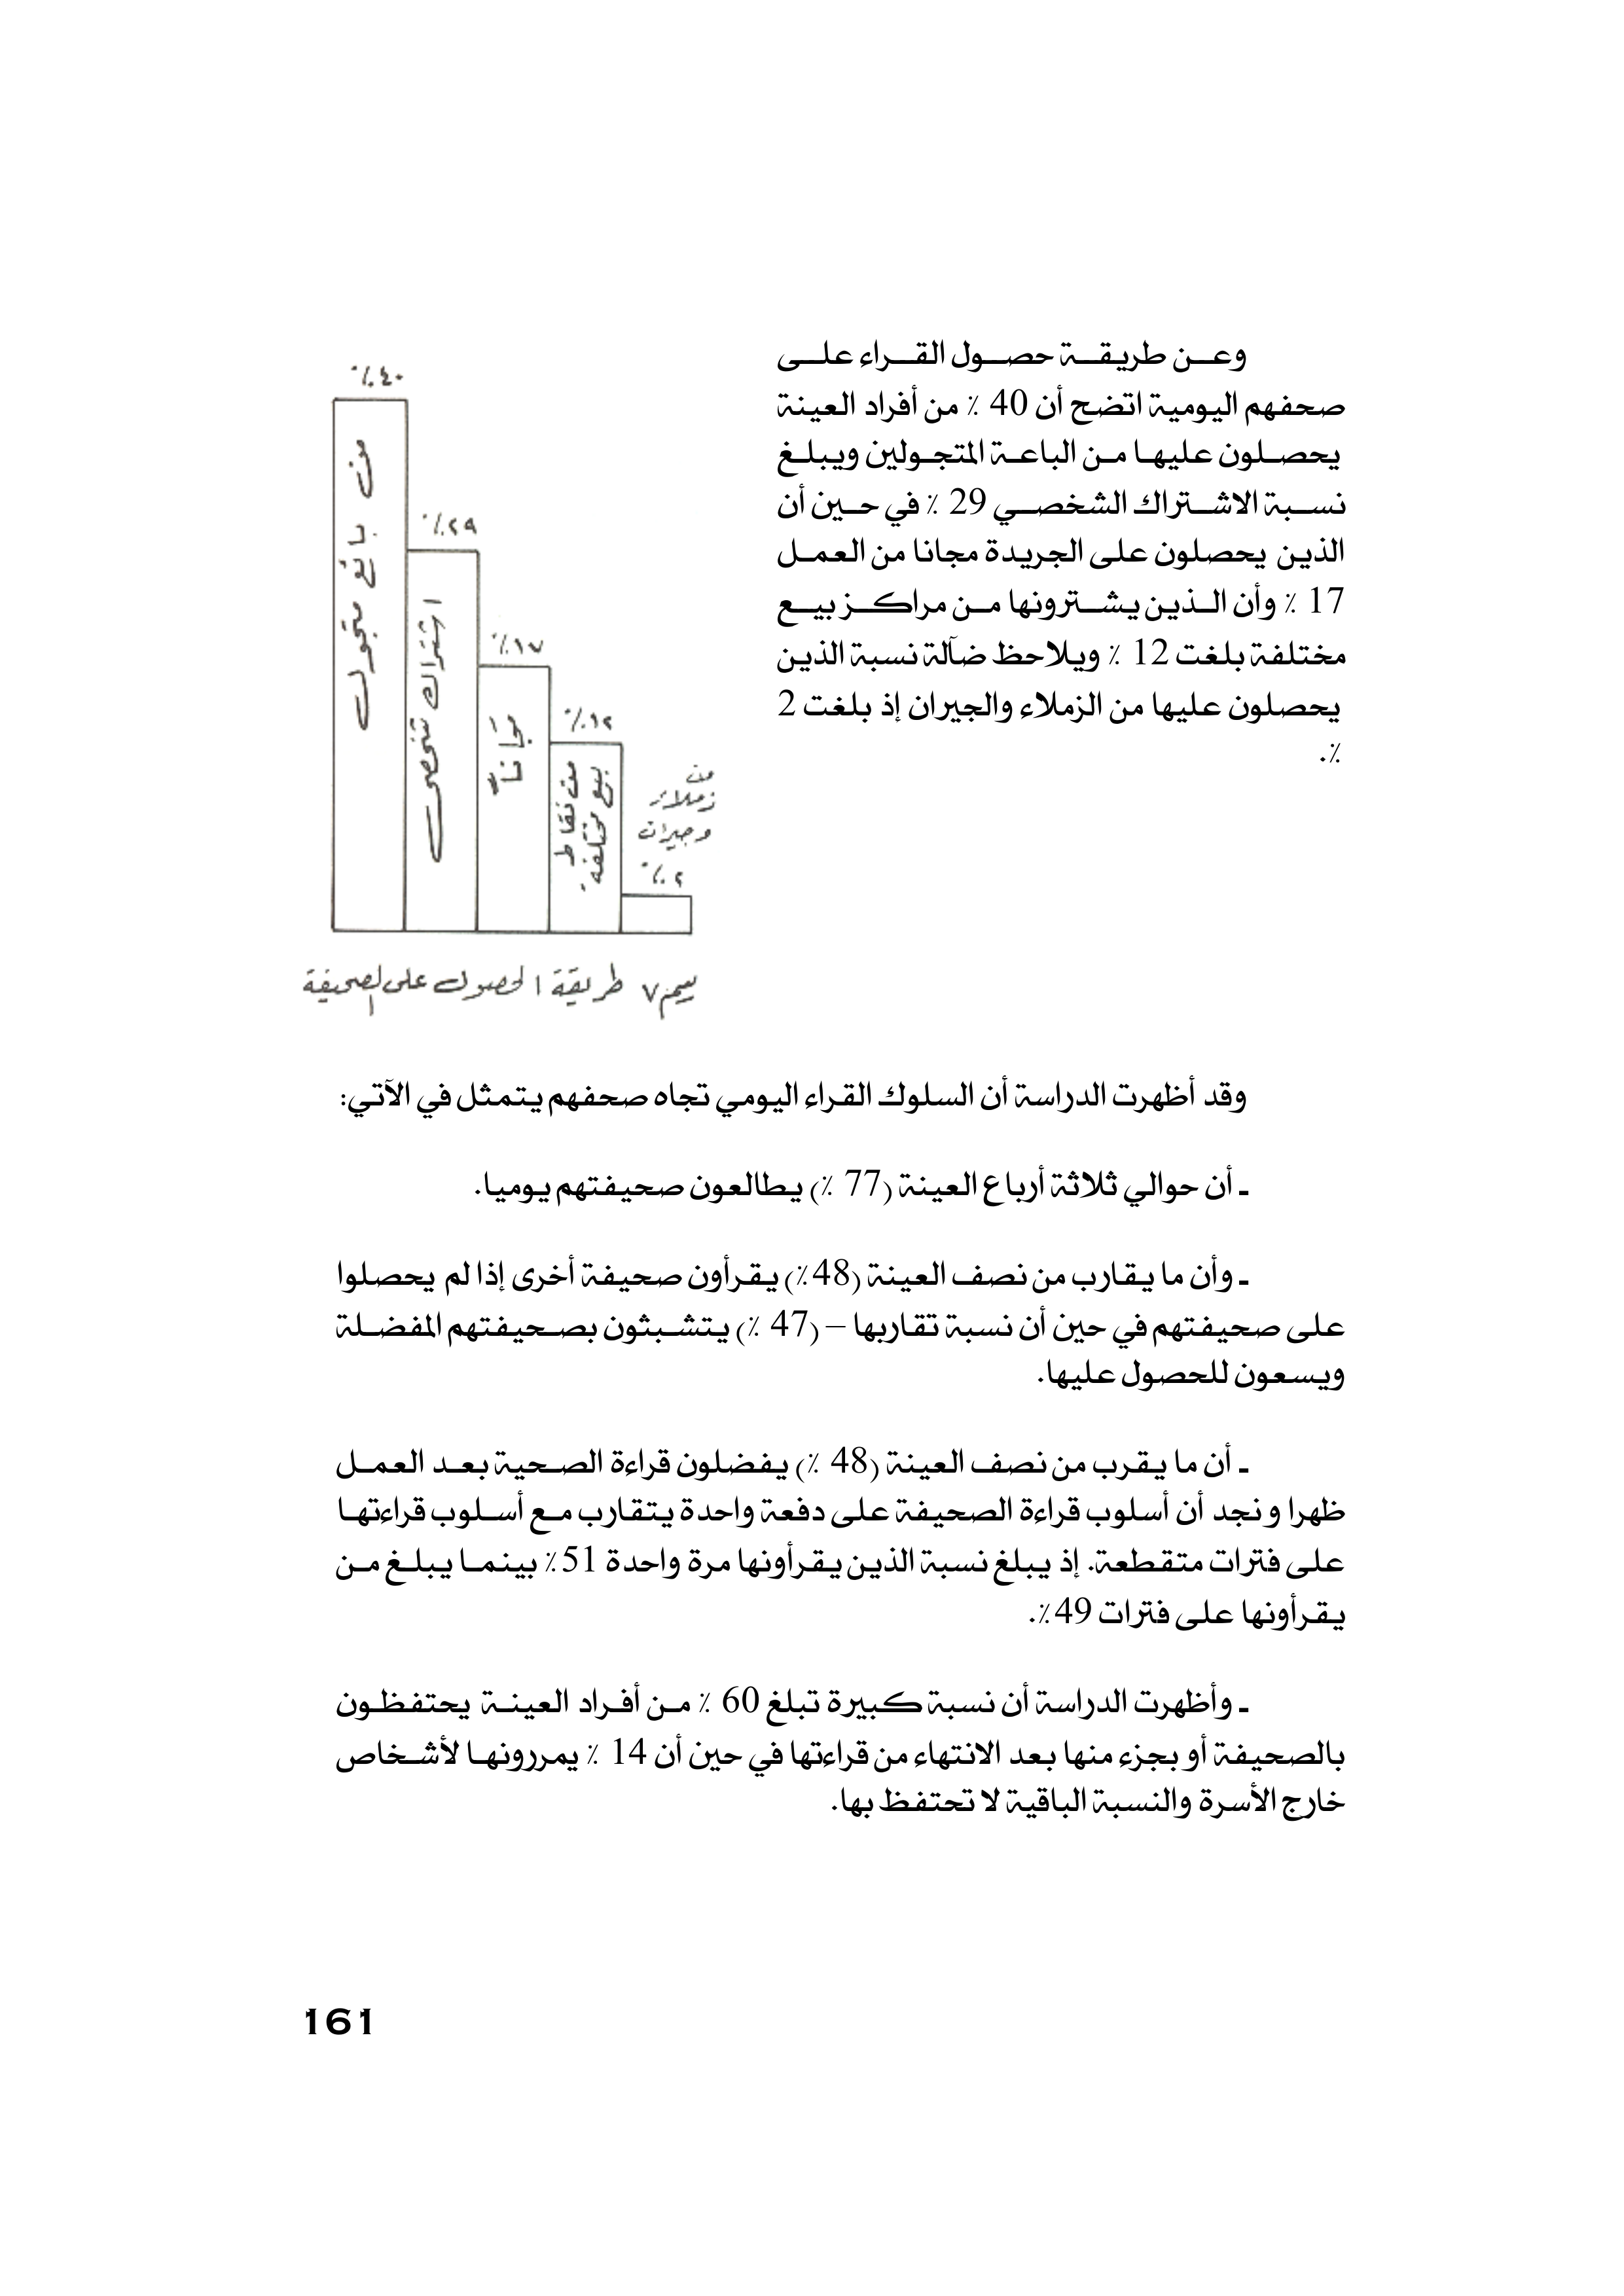 وعن طريقة حصول القراء على
صحفهم اليومية اتضح أن 40 ٪ من أفراد العينة
يحصلون عليها من الباعة المتجولين ويبلغ
نسبة الاشتراك الشخصي 29 ٪ في حين أن
الذين يحصلون على الجريدة مجانا من العمل
17 ٪ وأن الذين يشترونها من مراكز بيع
مختلفة بلغت 12 ٪ ويلاحظ ضآلة نسبة الذين
يحصلون عليها من الزملاء والجيران إذ بلغت 2
٪.
٤٠٪
من بائع متجول
٢٩٪
اشتراك شخصي
١٧٪
مجاناً
١٢٪
من نقاط
بيع مختلفة
من
زملاء
وجيران
٢٪
رسم ٧ طريقة الحصول على الصحيفة
وقد أظهرت الدراسة أن السلوك القراء اليومي تجاه صحفهم يتمثل في الآتي:
ـ أن حوالي ثلاثة أرباع العينة (77 ٪) يطالعون صحيفتهم يوميا.
ـ وأن ما يقارب من نصف العينة (48٪) يقرأون صحيفة أخرى إذا لم يحصلوا
على صحيفتهم في حين أن نسبة تقاربها – (47 ٪) يتشبثون بصحيفتهم المفضلة
ويسعون للحصول عليها.
ـ أن ما يقرب من نصف العينة (48 ٪) يفضلون قراءة الصحية بعد العمل
ظهرا و نجد أن أسلوب قراءة الصحيفة على دفعة واحدة يتقارب مع أسلوب قراءتها
على فترات متقطعة. إذ يبلغ نسبة الذين يقرأونها مرة واحدة 51٪ بينما يبلغ من
يقرأونها على فترات 49٪.
ـ وأظهرت الدراسة أن نسبة كبيرة تبلغ 60 ٪ من أفراد العينة يحتفظون
بالصحيفة أو بجزء منها بعد الانتهاء من قراءتها في حين أن 14 ٪ يمررونها لأشخاص
خارج الأسرة والنسبة الباقية لا تحتفظ بها.
161